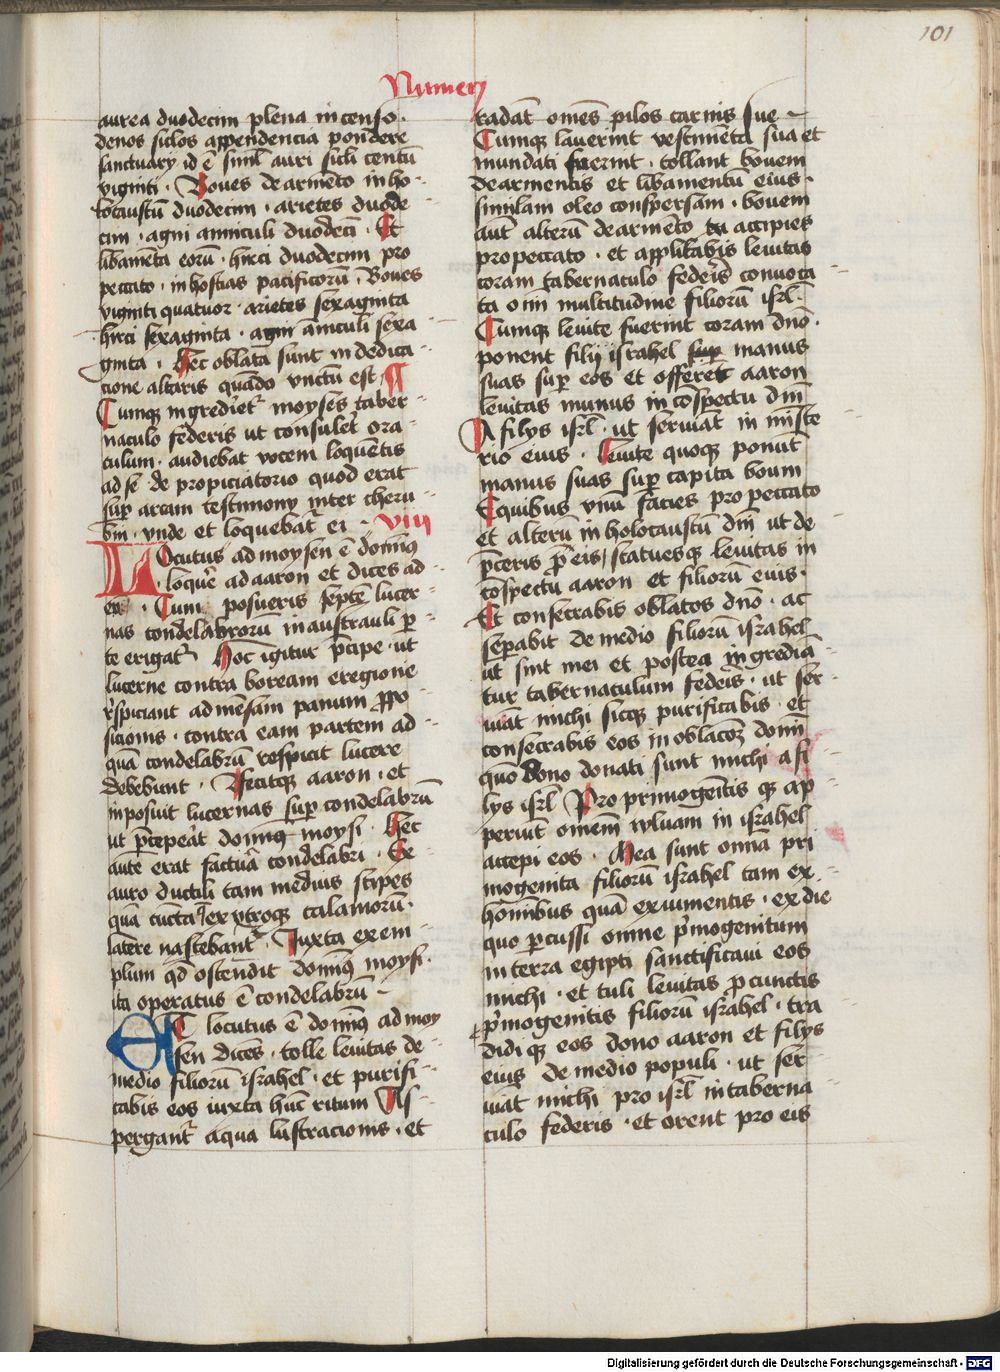 101
Numerj
aurea duodecim plena incenso ·
denos siclos appendencia pondere
sanctuarij id ē siml auri sicli centū
viginti · Boues de armēto in ho-
locaustū duodecim · arietes duode
cim · agni anniculi duodecī · Et
libamēta eorū · hirci duodecim pro
peccato · in hostias pacificorū · Boues
viginti quatuor · arietes sexaginta
hirci sexaginta · agni āniculi sexa
ginta · Hec oblata sunt in dedica
cione altaris quādo vnctū est ¶
Cumqȝ ingrediet᷑ moyses taber-
naculo federis ut consulet ora-
culum · audiebat vocem loquētis
ad se · de propiciatorio quod erat
sup arcam testimony inter cheru
bin · vnde et loquebat᷑ ei · viii
Locutus ad moysen ē domin9
loqu̓e ad aaron et dices ad
eū · Cum posueris septē lucer
nas condelabrorū in australi p̱
te erigat᷑ Hoc igitur p̄cipe · ut
lucerne contra boream e regione
r̓spiciant ad mēsam panum p̱po
sicionis · contra eam partem ad
quā condelabrū respicit lucere
debebunt · Fecitqȝ aaron · et
inposuit lucernas sup condelabrū
ut p̄cepeāt domin9 moysi · Hec
aute erat factura condelabri · Ex
auro ductili tam medius stipes
quā cuncta ex vtroqȝ calamorū ·
latere nascebant᷑ · Iuxta exem
plum qđ ostendit domin9 moysi ·
ita operatus ē condelabrū ·
Et locutus ē domin9 ad moy
sen dicēs · tolle leuitas de
medio filiorū israhel · et purifi-
cabis eos iuxta hūc ritum As
pergant᷑ aqua lustracionis · et
radāt omēs pilos carnis sue
Cumqȝ lauerint vestimēta sua et
mundati fuerint · tollant bouem
de armentis et libamentū eius ·
similam oleo conspersam · bouem
aūt alterū de armēto tu accipies
pro peccato · et applicabis leuitas
coram tabernaculo federis conuoca
ta omī multitudine filiorū isrl ·
Cumqȝ leuite fuerint coram dnō ·
ponent filij israhel sup manus
suas sup eos et offeret aaron
leuitas munus in cōspectu dnī
A filys isrl · ut seruiāt in miste
rio eius · Leuite quoqȝ ponūt
manus suas sup capita boum
E quibus vnū facies pro peccato
et alterū in holocaustū dnī ut de
p̄ceris p̱ eis statuesqȝ leuitas in
cōspectu aaron et filiorū euis ·
Et consecrabis oblatos dnō · ac
sepabit de medio filiorū israhel
ut sint mei et postea ingrediā
tur tabernaculum federis · ut ser
uiāt michi sicqȝ purificabis · et
consecrabis eos in oblacōȝ domī
quo dono donati sunt michi a fi
lys isrl Pro primogenitis qȝ ap
periūt omēm wluam in israhel
accepi eos · Mea sunt omīa pri
mogenita filiorū israhel tam ex
hominibus quā ex iumentis · ex die
quo pcussi omne p̓mogenitum
in terra egipti sanctificaui eos
michi · et tuli leuitas p̱ cunctis
p̓mogenitis filiorū israhel · tra
didi qȝ eos dono aaron et filys
eius de medio populi · ut ser
uiāt michi pro isrl in taberna
culo federis · et orent pro eis
Digitalisierung gefördert durch die Deutsche Forschungsgemeinschaft - DFG